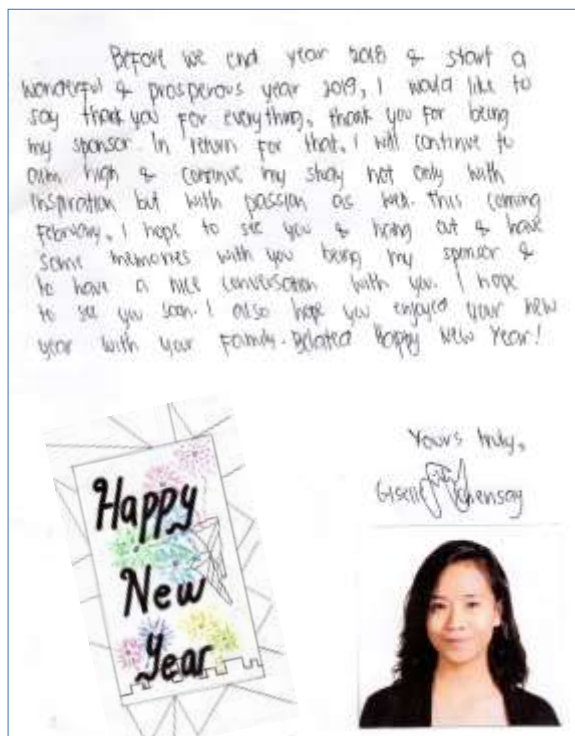 Before we end year 2018 & start a
wonderful & prosperous year 2019, I would like to
say thank you for everything, thank you for being
my sponsor. In return for that, I will continue to
aim high & continue my study not only with
inspiration but with passion as well. This coming
February, I hope to see you & hang out & have
some memories with you being my sponsor &
to have a nice conversation with you. I hope
to see you soon. I also hope you enjoyed your new
year with your family. Belated Happy New Year!
Happy
New
Year
Yours truly,
Giselle